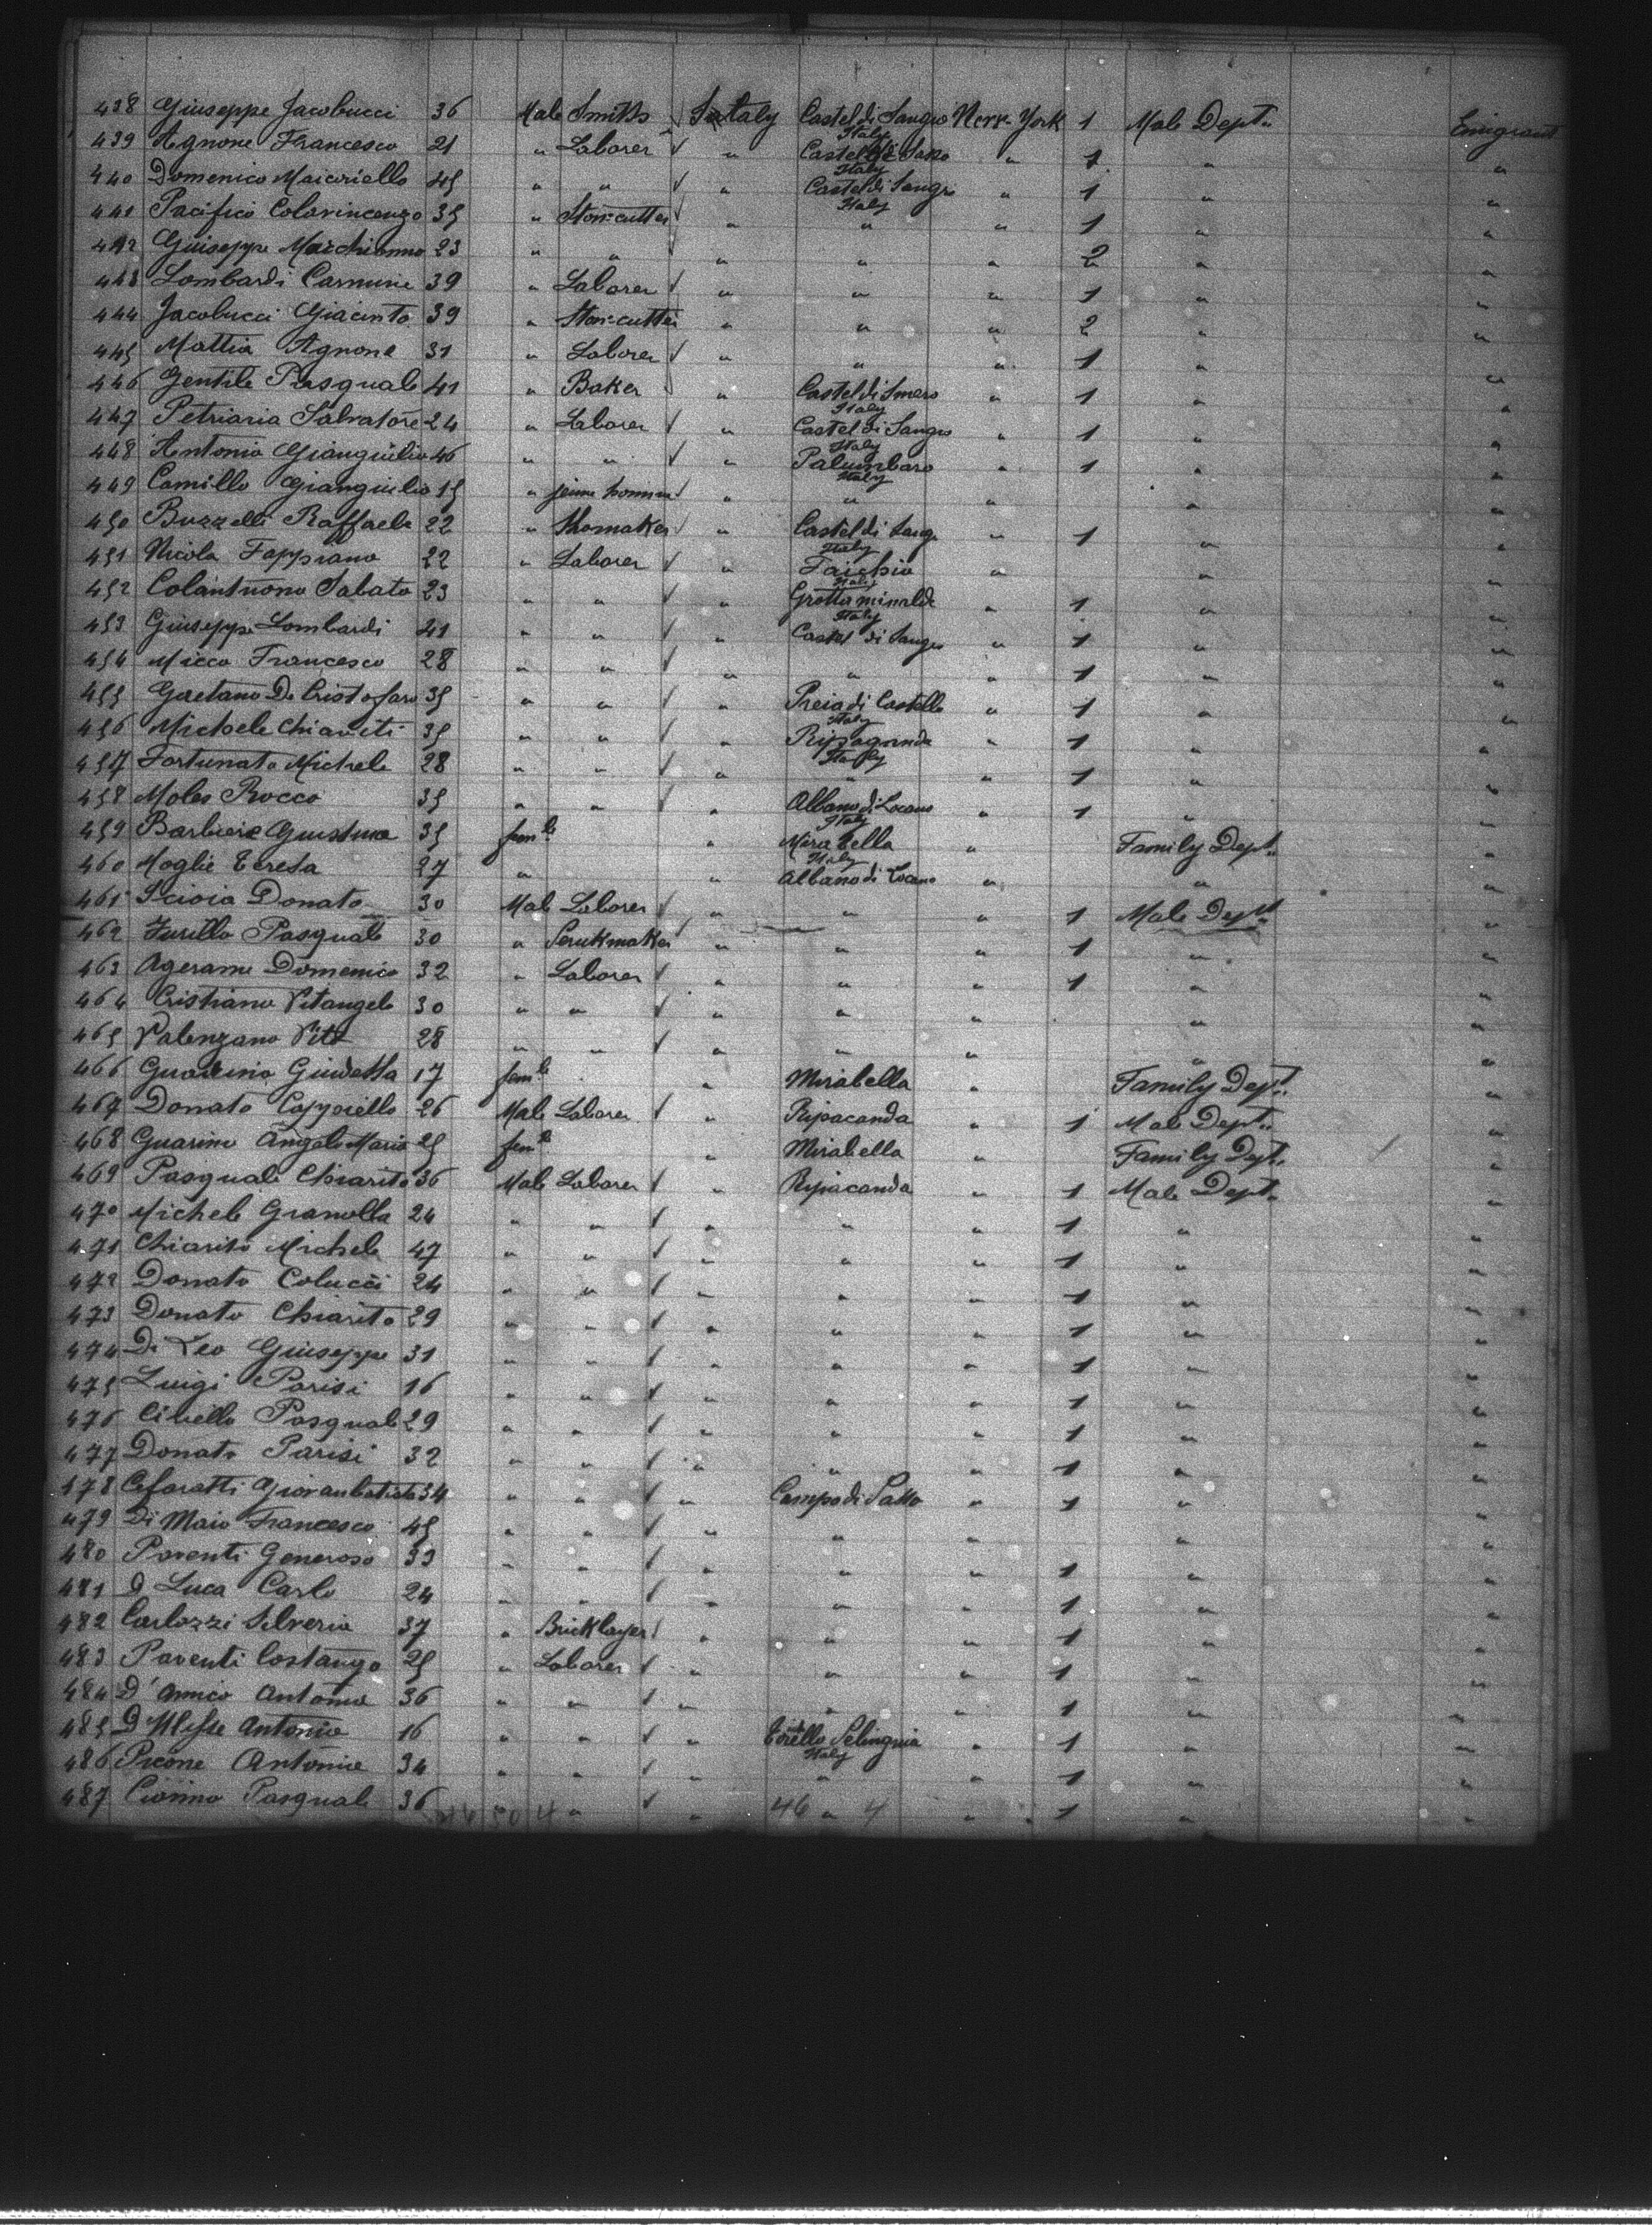 438 Giuseppe Jacobucci 36 Male Smith Italy Castel di Sangro Italy New York 1 Male Dept. Emigrant
439 Agnone Francesco 21 " Laborer " Castel Italy " 1 " "
440 Domenico 45 " " " Castel di Sangro Italy " 1 " "
441 Pacifico Colavincenzo 35 " Stone-cutter " " " 1 " "
442 Giuseppe 23 " " " " " 2 " "
443 Lombardi Carmine 39 " Laborer " " " 1 " "
444 Jacobucci Giacinto 39 " Stone-cutter " " " 2 " "
445 Mattia Agnone 31 " Laborer " " " 1 " "
446 Gentile Pasquale 41 " Baker " Castel di Italy " 1 " "
447 Petriaria Salvatore 24 " Laborer " Castel di Sangro Italy " 1 " "
448 Antonio Giangiulio 46 " " " Palumbaro Italy " 1 " "
449 Camillo Giangiulio 15 " jeune homme " " " " "
450 Buzzelli Raffaele 22 " Shomaker " Castel di Sang. Italy " 1 " "
451 Nicola Fappiano 22 " Laborer " Faichio Italy " " "
452 Colantuono Sabato 23 " " " Grottaminalda Italy " 1 " "
453 Giuseppe Lombardi 41 " " " Castel di Sangro " 1 " "
454 Micco Francesco 28 " " " " " 1 " "
455 Gaetano De Cristofaro 35 " " " di Castello Italy " 1 " "
456 Michele 35 " " " Italy " 1 " "
457 Fortunato Michele 28 " " " " " 1 " "
458 Moles Rocco 35 " " " Albano di Lucano Italy " 1 " "
459 Barbiere Giustina 35 femle " Mirabella Italy " Family Dept. "
460 Moglie Teresa 27 " " Albano di Lucano " " "
461 Scioia Donato 30 Male Laborer " " " 1 Male Dept "
462 Pasquale 30 " " " " 1 " "
463 Domenico 32 " Laborer " " " 1 " "
464 Cristiano Vitangelo 30 " " " " " " "
465 Valenzano Vito 28 " " " " " " "
466 Guarino Giudetta 17 femle " Mirabella " Family Dept. "
467 Donato Cappiello 26 Male Laborer " Ripacanda " 1 Male Dept. "
468 Guarino Angela Maria 25 femle " Mirabella " Family Dept. "
469 Pasquale Chiarito 36 Male Laborer " Ripacanda " 1 Male Dept. "
470 Michele Granolla 24 " " " " " 1 " "
471 Chiarito Michele 47 " " " " " 1 " "
472 Donato Colucci 24 " " " " " 1 " "
473 Donato Chiarito 29 " " " " " 1 " "
474 Di Leo Giuseppe 31 " " " " " 1 " "
475 Luigi Parisi 16 " " " " " 1 " "
476 Pasquale 29 " " " " " 1 " "
477 Donato Parisi 32 " " " " " 1 " "
478 Cefaratti Giovanbatista 34 " " " Campo di " 1 " "
479 Di Maio Francesco 45 " " " " " " "
480 Paventi Generoso 33 " " " " " 1 " "
481 D Luca Carlo 24 " " " " " 1 " "
482 Carlozzi Silverio 37 " Bricklayer " " " 1 " "
483 Paventi Costanzo 25 " Laborer " " " 1 " "
484 D'Amico Antonio 36 " " " " " 1 " "
485 D'Ulisse Antonio 16 " " " Torello Italy " 1 " "
486 Picone Antonio 34 " " " " " 1 " "
487 Pasquale 36 " " " " " 1 " "
46 4